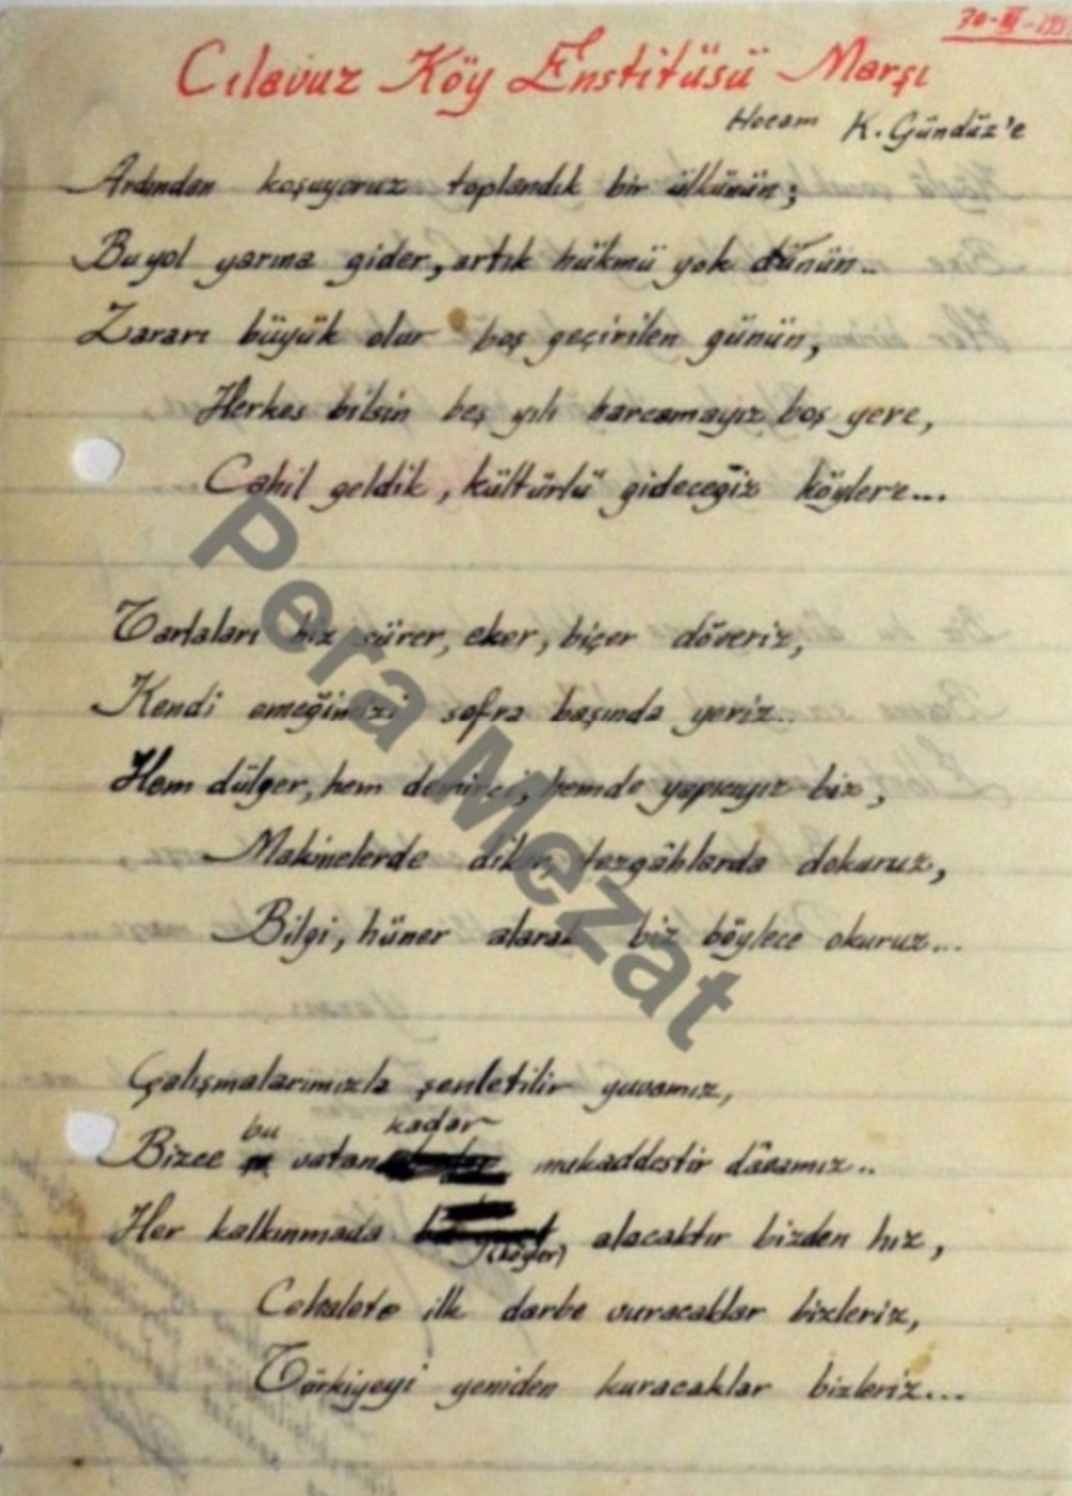 Cılavuz Köy Enstitüsü Marşı
Hocam K. Gündüz'e
Ardından koşuyoruz toplandık bir ülkünün;
Bu yol yarına gider, artık hükmü yok dünün..
Zararı büyük olur boş geçirilen günün,
Herkes bilsin beş yılı harcamayız boş yere,
Cahil geldik, kültürlü gideceğiz köylere...
Tarlaları biz sürer, eker, biçer döveriz,
Kendi emeğimizi sofra başında yeriz..
Hem dülger, hem demirci, hemde yapıcıyız biz,
Makinelerde diker, tezgâhlarda dokuruz,
Bilgi, hüner alarak biz böylece okuruz...
Çalışmalarımızla şenletilir yuvamız,
bu kadar
Bizce vatan mukaddestir dâvamız..
Her kalkınmada alacaktır bizden hız,
(köyler)
Cehalete ilk darbe vuracaklar bizleriz,
Türkiyeyi yeniden kuracaklar bizleriz...
Pera Mezat